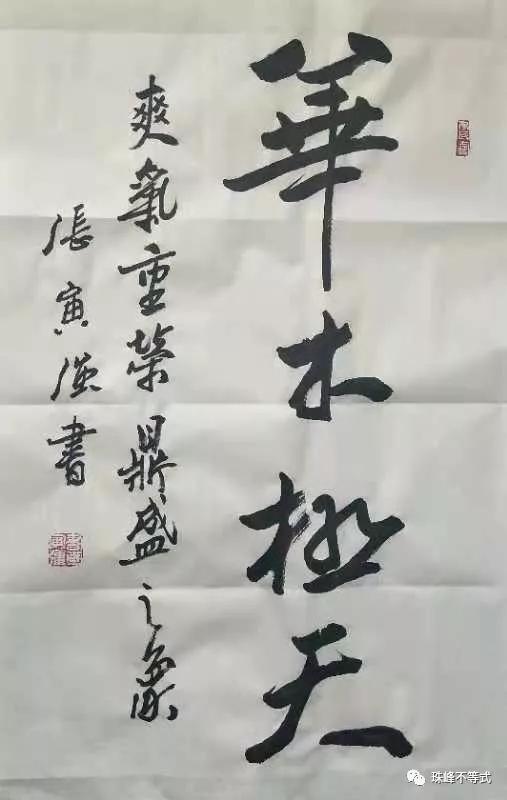 華木極天
爽氣重榮鼎盛之象
張寅 書
珠峰不等式